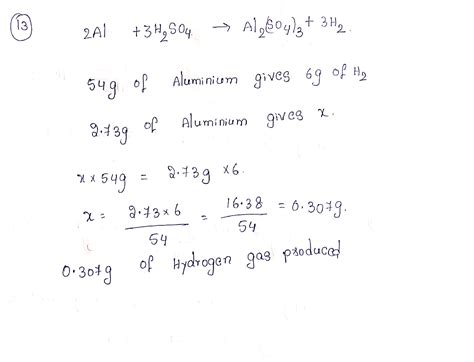 13
2Al + 3H₂SO₄ → Al₂(SO₄)₃ + 3H₂.
54g of Aluminium gives 6g of H₂
2.73g of Aluminium gives x.
x × 54g = 2.73g × 6.
x = 2.73 × 6 / 54 = 16.38 / 54 = 0.307g.
0.307g of Hydrogen gas produced